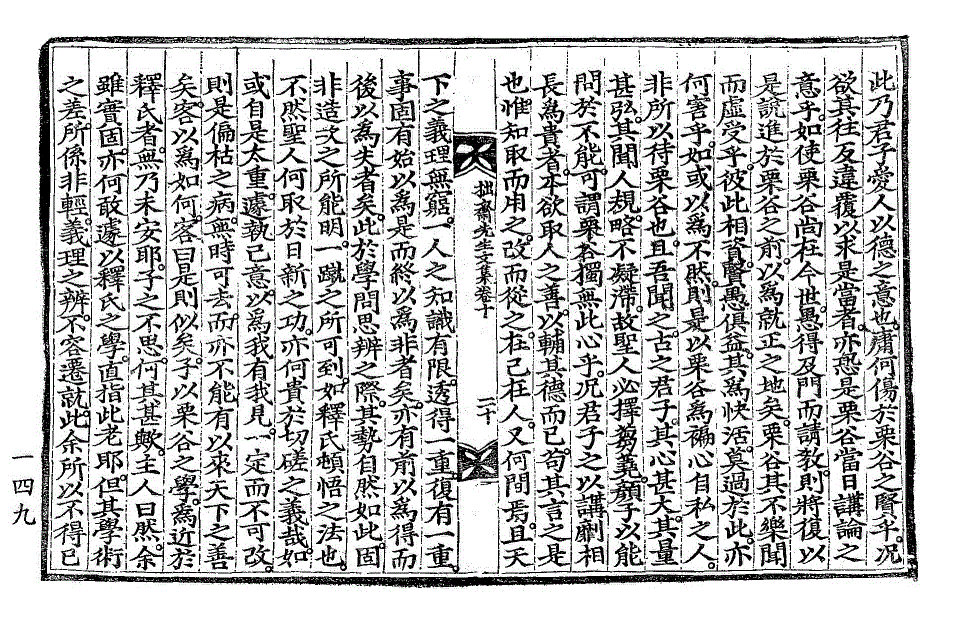 此乃君子愛人以德之意也。庸何傷於栗谷之賢乎。况
欲其往反違覆以求是當者。亦恐是栗谷當日講論之
意乎。如使栗谷尙在今世。愚得及門而請敎。則將復以
是說進於栗谷之前。以爲就正之地矣。栗谷其不樂聞
而虛受乎。彼此相資。賢愚俱益。其爲快活。莫過於此。亦
何害乎。如或以爲不然。則是以栗谷爲褊心自私之人。
非所以待栗谷也。且吾聞之。古之君子。其心甚大。其量
甚弘。其聞人規。略不凝滯。故聖人必擇蒭蕘。顔子以能
問於不能。可謂栗谷獨無此心乎。况君子之以講劘相
長爲貴者。本欲取人之善。以輔其德而已。苟其言之是
也。惟知取而用之。改而從之。在己在人。又何間焉。且天
拙齋先生文集卷十
二十
下之義理無窮。一人之知識有限。透得一重。復有一重。
事固有始以爲是而終以爲非者矣。亦有前以爲得而
後以爲失者矣。此於學問思辨之際。其勢自然如此。固
非造次之所能明。一蹴之所可到。如釋氏頓悟之法也。
不然。聖人何取於日新之功。亦何貴於切磋之義哉。如
或自是太重。遽執己意。以爲我有我見。一定而不可改。
則是偏枯之病。無時可去。而亦不能有以來天下之善
矣。客以爲如何。客曰。是則似矣。子以栗谷之學。爲近於
釋氏者。無乃未安耶。子之不思。何其甚歟。主人曰。然。余
雖實固。亦何敢遽以釋氏之學。直指此老耶。但其學術
之差。所係非輕。義理之辨。不容遷就。此余所以不得已
一四九